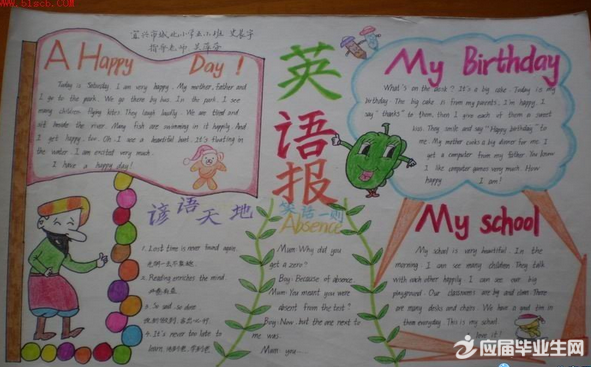 www.blscb.com
A Happy Day !
Today is Saturday. I am very happy. My mother, father and
I go to the park. We go there by bus. In the park, I see
many children flying kites. They laugh loudly. We are tired and
sit beside the river. Many fish are swimming in it happily. And
I get happy, too. Oh, I see a beautiful boat. It's floating in
the water. I am excited very much.
I have a happy day!
英
语
报
My Birthday
What's on the desk? It's a big cake. Today is my
birthday. The big cake is from my parents. I'm happy. I
say "thanks" to them, then I give each of them a sweet
kiss. They smile and say "Happy birthday" to
me. My mother cooks a big dinner for me. I
get a computer from my father. You know
I like computer games very much. How
happy I am!
谚语天地
1. Lost time is never found again.
2. Reading enriches the mind.
3. So said so done
4. It's never too late to
learn.
笑话一则
Absence
Mum: Why did you
get a zero?
Boy: Because of absence.
Mum: You meant you were
absent from the test?
Boy: No, but the one next to
me was.
Mum: you...
My school
My school is very beautiful. In the
morning, I can see many children. They talk
with each other happily. I can see our big
playground. Our classrooms are big and clean. There
are many desks and chairs. We have a good time in
them everyday. This is my school.
I love it!
应届毕业生网